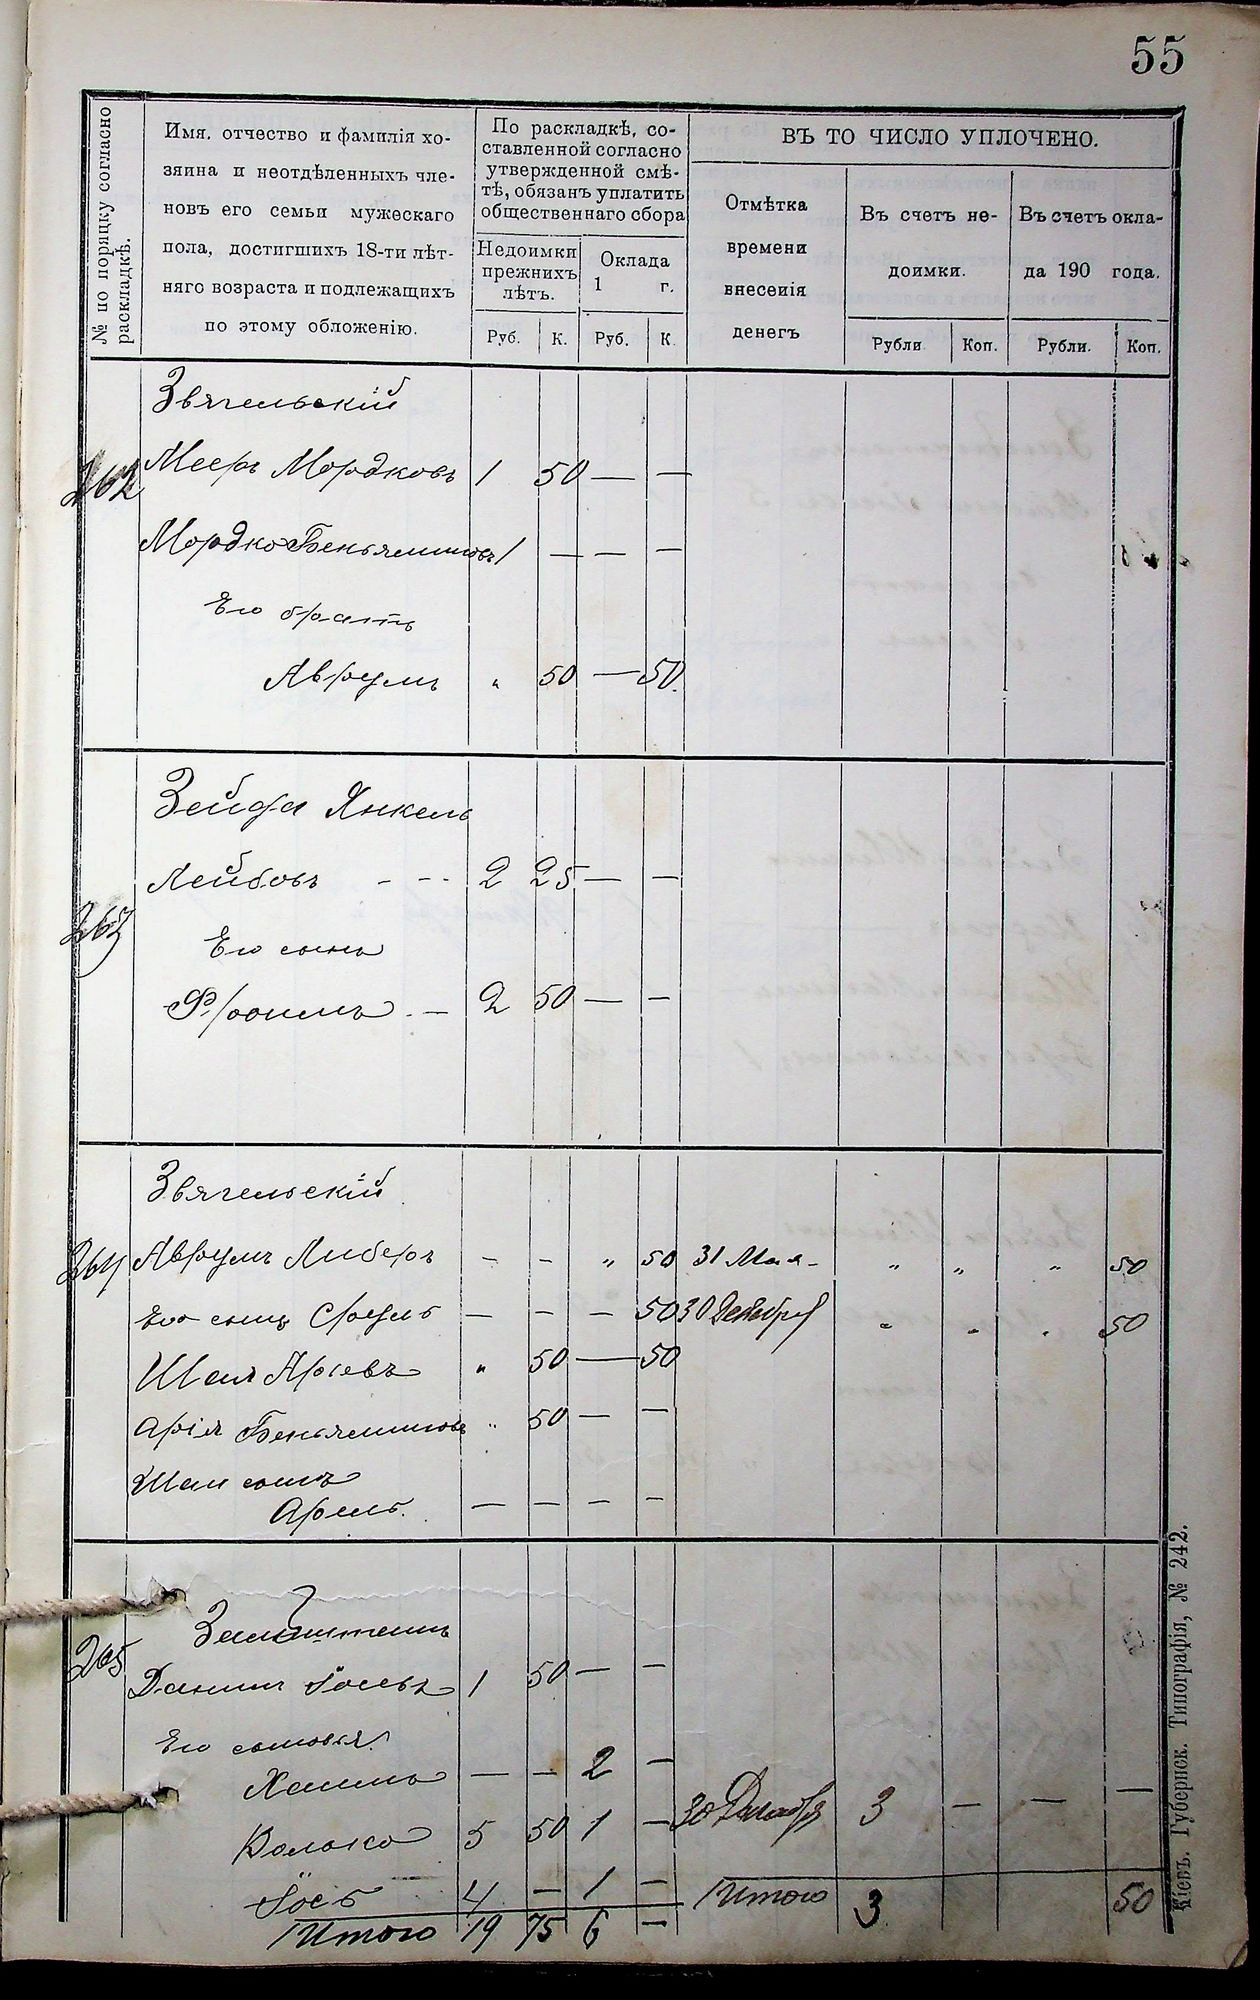 55
№ по порядку согласно раскладкѣ.
Имя, отчество и фамилія хо-
зяина и неотдѣленныхъ чле-
новъ его семьи мужескаго
пола, достигшихъ 18-ти лѣт-
няго возраста и подлежащихъ
по этому обложенію.
По раскладкѣ, со-
ставленной согласно
утвержденной смѣ-
тѣ, обязанъ уплатить
общественнаго сбора
Недоимки
прежнихъ
лѣтъ.
Оклада
1 г.
Руб. К. Руб. К.
ВЪ ТО ЧИСЛО УПЛОЧЕНО.
Отмѣтка
времени
внесенія
денегъ
Въ счетъ не-
доимки.
Въ счетъ окла-
да 190 года.
Рубли Коп. Рубли. Коп.
Звягельскій
262 Мееръ Мордковъ 1 50 — —
Мордко Беньяминовъ 1 — — —
Его братъ
Аврумъ " 50 — 50.
Зейфа Янкель
Лейбовъ - - - 2 25 — —
263
Его сынъ
Фроимъ - — 2 50 — —
Звягельскій
264 Аврумъ Либеръ — — " 50 31 Мая — " " " 50
Его сынъ Сруль — — — 50 30 Декабря " " " 50
Шая Арьевъ " 50 — 50
Арія Беньяминовъ " 50 — —
Шаи сынъ
Арель. — — — —
265
Данил Іосевъ 1 50 — —
Его сыновья:
Хаимъ — — 2 —
Волько 5 50 1 — 30 Декабря 3 — — —
Іось 4 — 1 —
Итого 19 75 6 — Итого 3 50
Кіевъ. Губернск. Типографія, № 242.